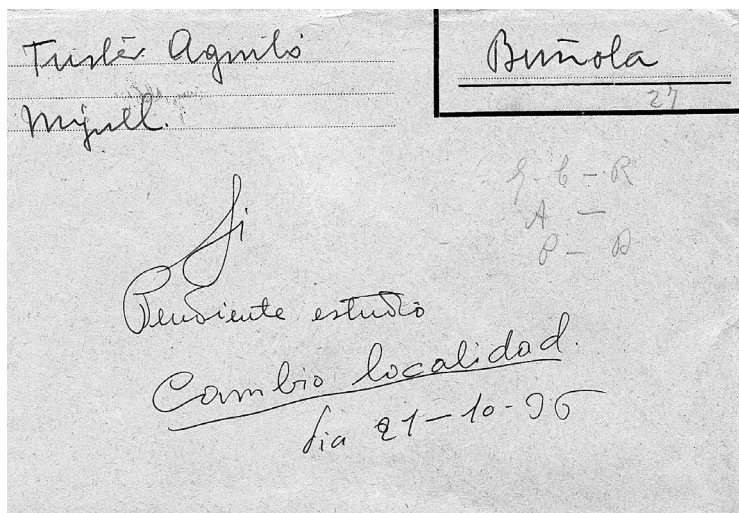 Fuster Aguiló
Miguel.
Buñola
27
G. C - R
A -
P - D
Si
Pendiente estudio
Cambio localidad.
dia 21-10-36